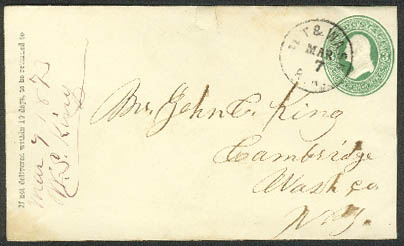 If not delivered within 10 days, to be returned to
Mar 7 1873
King
MAR
7
Mr. John C. King
Cambridge
Wash Co
N.Y.